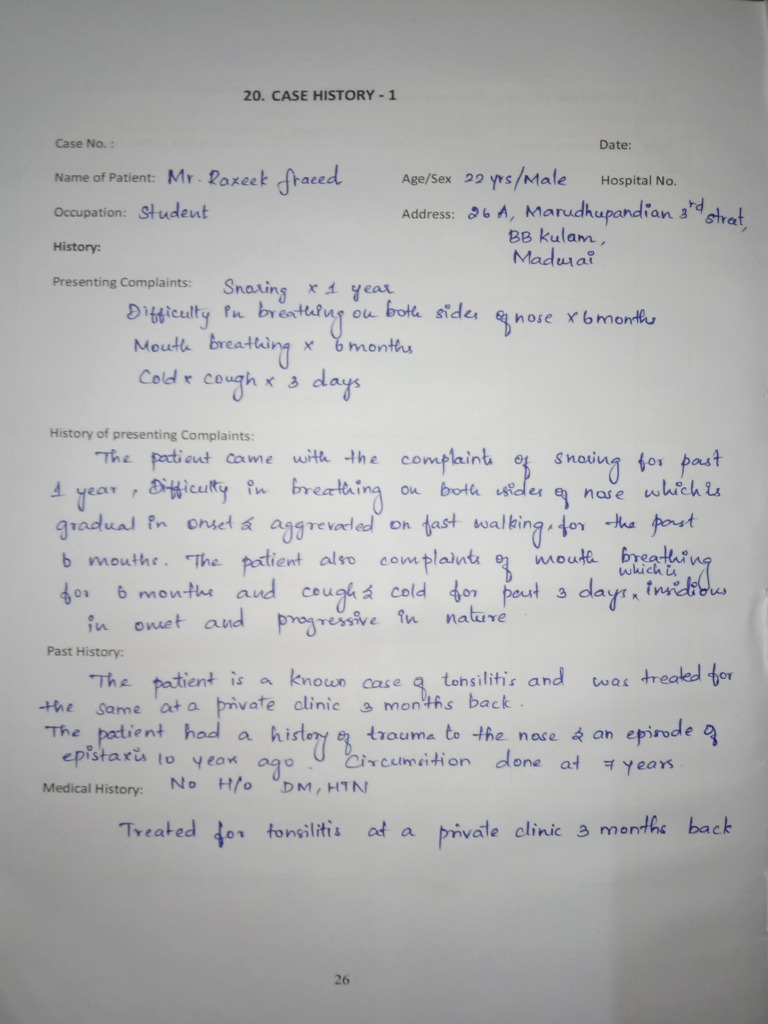 20. CASE HISTORY - 1
Case No. : Date:
Name of Patient: Mr. Raxeek fraeed Age/Sex 22 yrs/Male Hospital No.
Occupation: Student Address: 26 A, Marudhupandian 3rd street,
BB Kulam,
Madurai
History:
Presenting Complaints: Snoring x 1 year
Difficulty in breathing on both sides of nose x 6 months
Mouth breathing x 6 months
Cold x cough x 3 days
History of presenting Complaints:
The patient came with the complaints of snoring for past
1 year, Difficulty in breathing on both sides of nose which is
gradual in onset & aggrevated on fast walking, for the past
6 months. The patient also complaints of mouth breathing
for 6 months and cough & cold for past 3 days, which is insidious
in onset and progressive in nature
Past History:
The patient is a known case of tonsilitis and was treated for
the same at a private clinic 3 months back.
The patient had a history of trauma to the nose & an episode of
epistaxis 10 year ago. Circumsition done at 7 years.
Medical History: No H/o DM, HTN
Treated for tonsilitis at a private clinic 3 months back
26